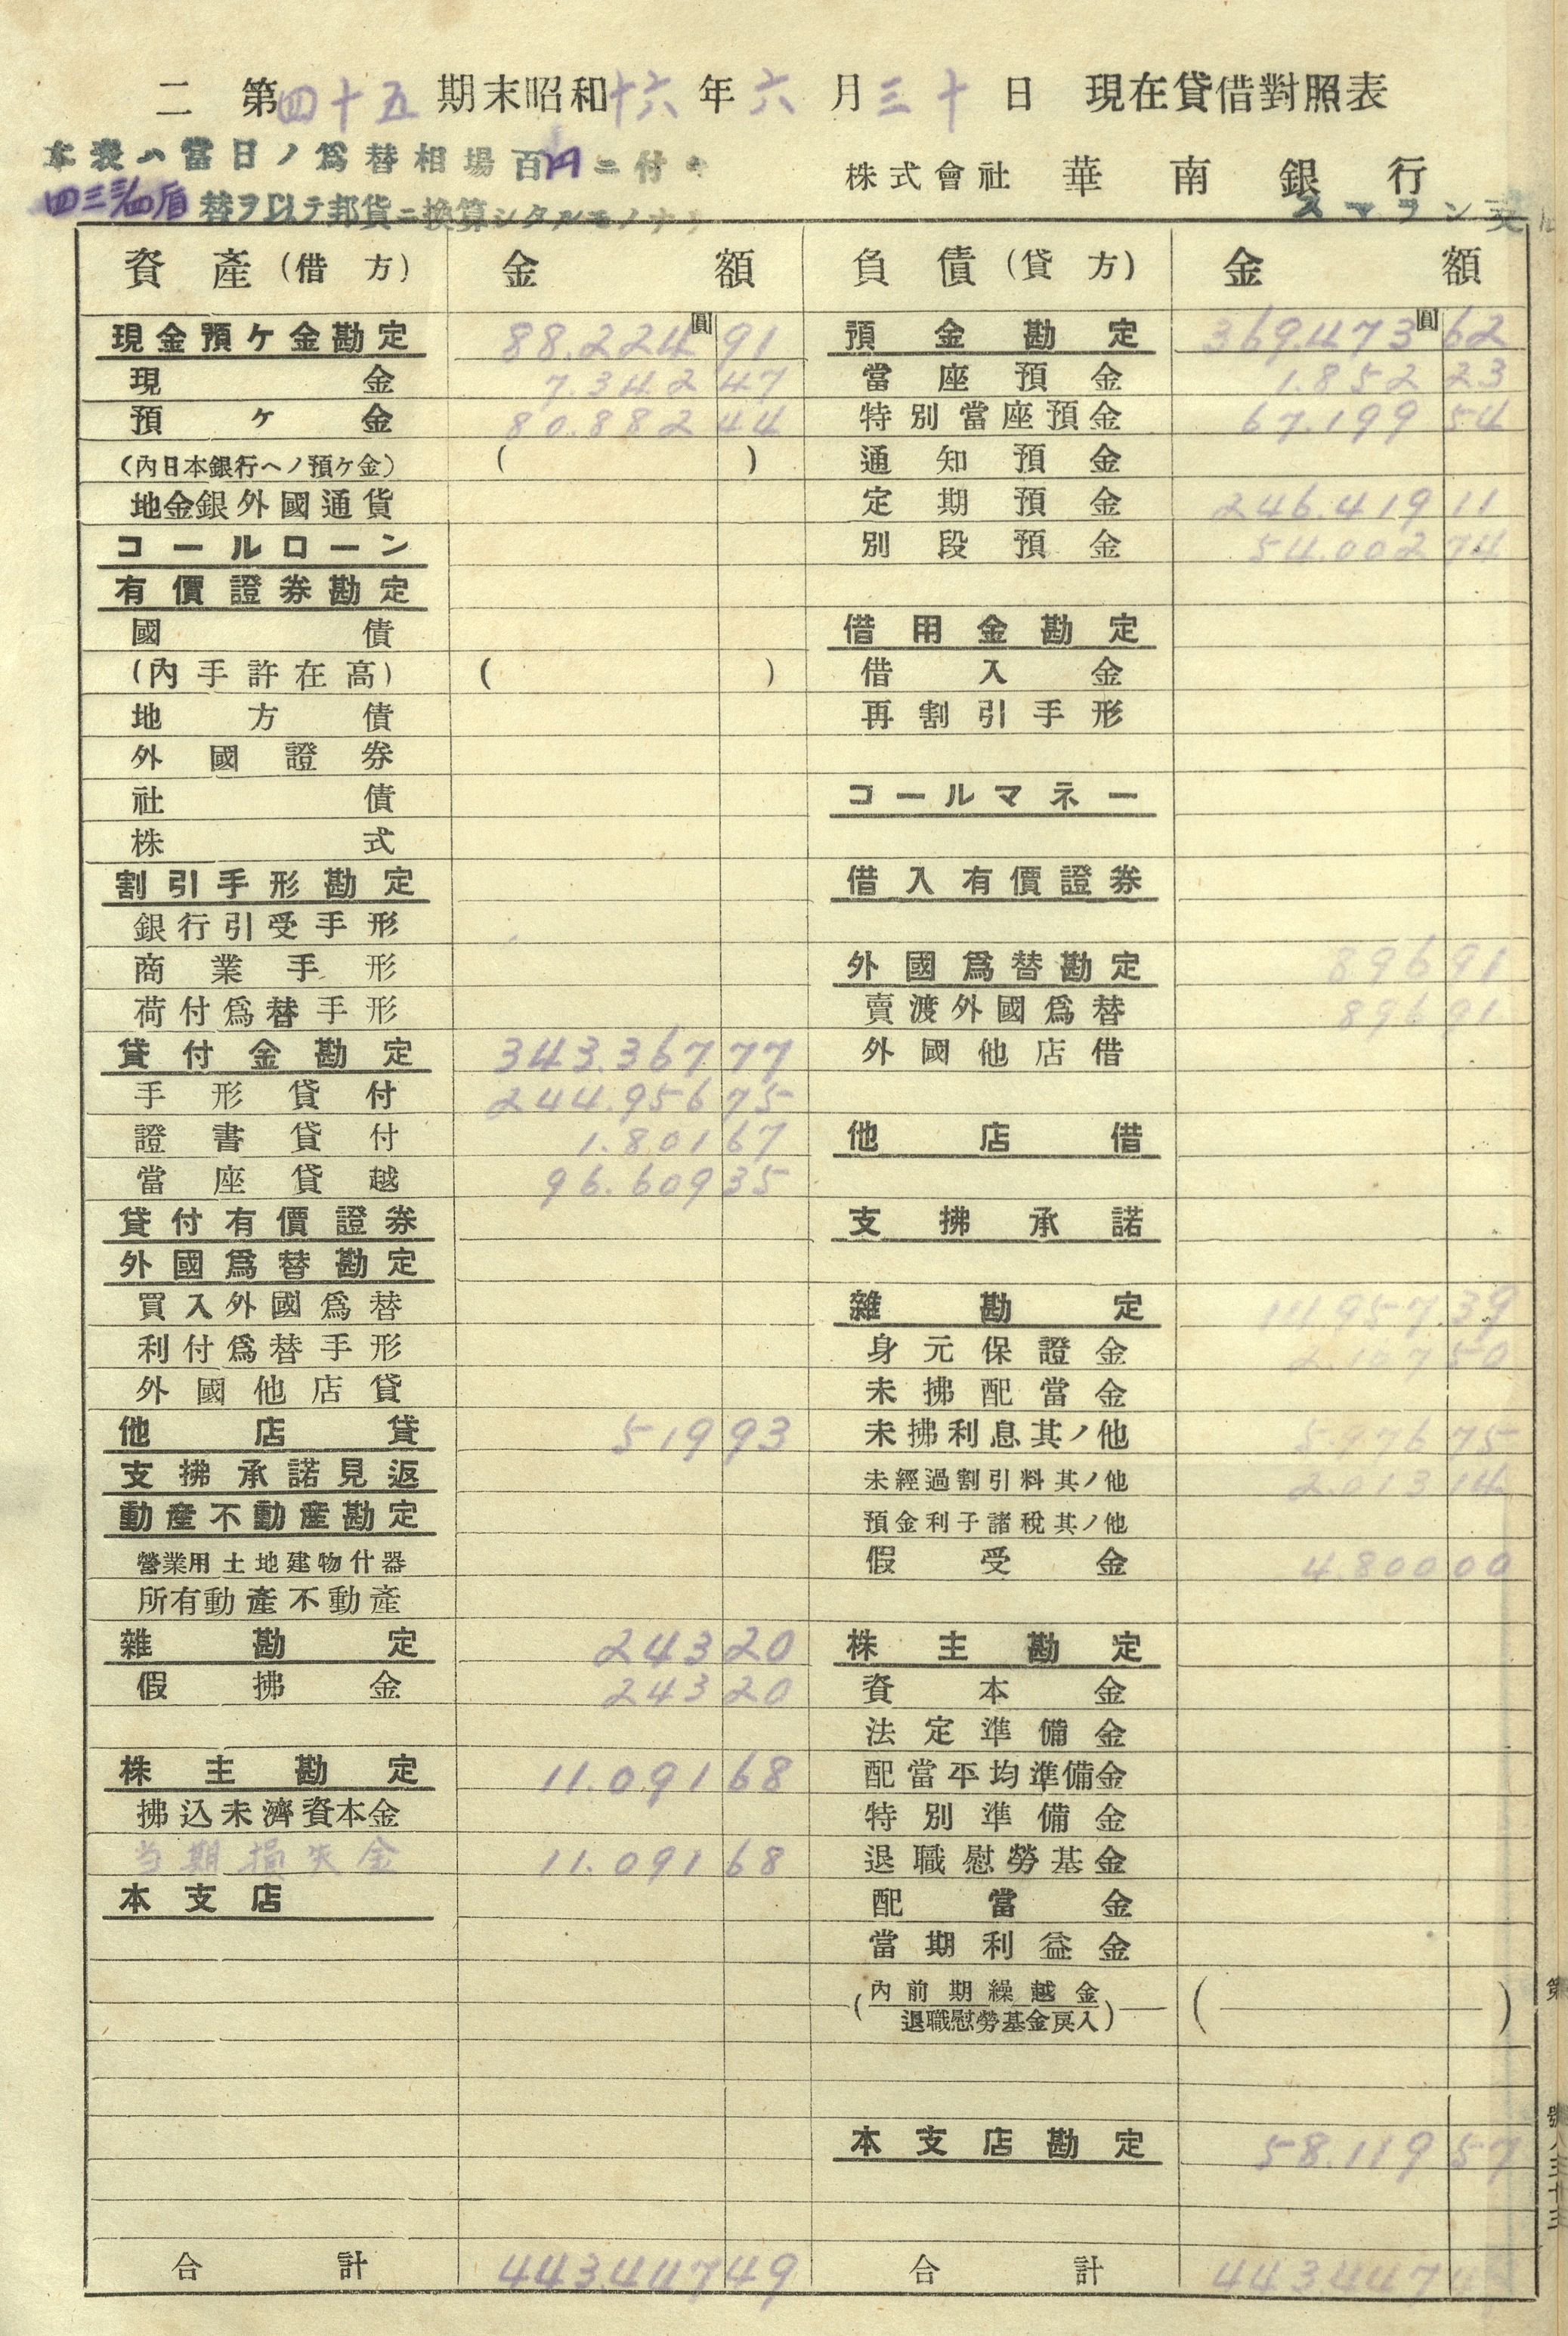 二 第四十五期末昭和十六年六月三十日 現在貸借對照表
本表ハ當日ノ爲替相場百円ニ付
替ヲ以テ邦貨ニ換算シタルモノナリ
株式會社 華南銀行
スマラン支店
資產(借方) 金額
現金預ケ金勘定 88.224圓91
現金 7.342 47
預ケ金 80.882 44
(內日本銀行ヘノ預ケ金) ( )
地金銀外國通貨
コールローン
有價證券勘定
國債
(內手許在高) ( )
地方債
外國證券
社債
株式
割引手形勘定
銀行引受手形
商業手形
荷付爲替手形
貸付金勘定 343.367 77
手形貸付 244.956 75
證書貸付 1.801 67
當座貸越 96.609 35
貸付有價證券
外國爲替勘定
買入外國爲替
利付爲替手形
外國他店貸
他店貸 519 93
支拂承諾見返
動產不動產勘定
營業用土地建物什器
所有動產不動產
雜勘定 243 20
假拂金 243 20
株主勘定 11.091 68
拂込未濟資本金
当期損失金 11.091 68
本支店
合計 443.447 49
負債(貸方) 金額
預金勘定 369.473圓62
當座預金 1.852 23
特別當座預金 67.199 54
通知預金
定期預金 246.419 11
別段預金 54.002 74
借用金勘定
借入金
再割引手形
コールマネー
借入有價證券
外國爲替勘定 896 91
賣渡外國爲替 896 91
外國他店借
他店借
支拂承諾
雜勘定 14.957.39
身元保證金 2.167 50
未拂配當金
未拂利息其ノ他 5.976 75
未經過割引料其ノ他 2.013 14
預金利子諸稅其ノ他
假受金 4.800 00
株主勘定
資本金
法定準備金
配當平均準備金
特別準備金
退職慰勞基金
配當金
當期利益金
(內前期繰越金 退職慰勞基金戾入) ( )
本支店勘定 58.119 57
合計 443.447 49